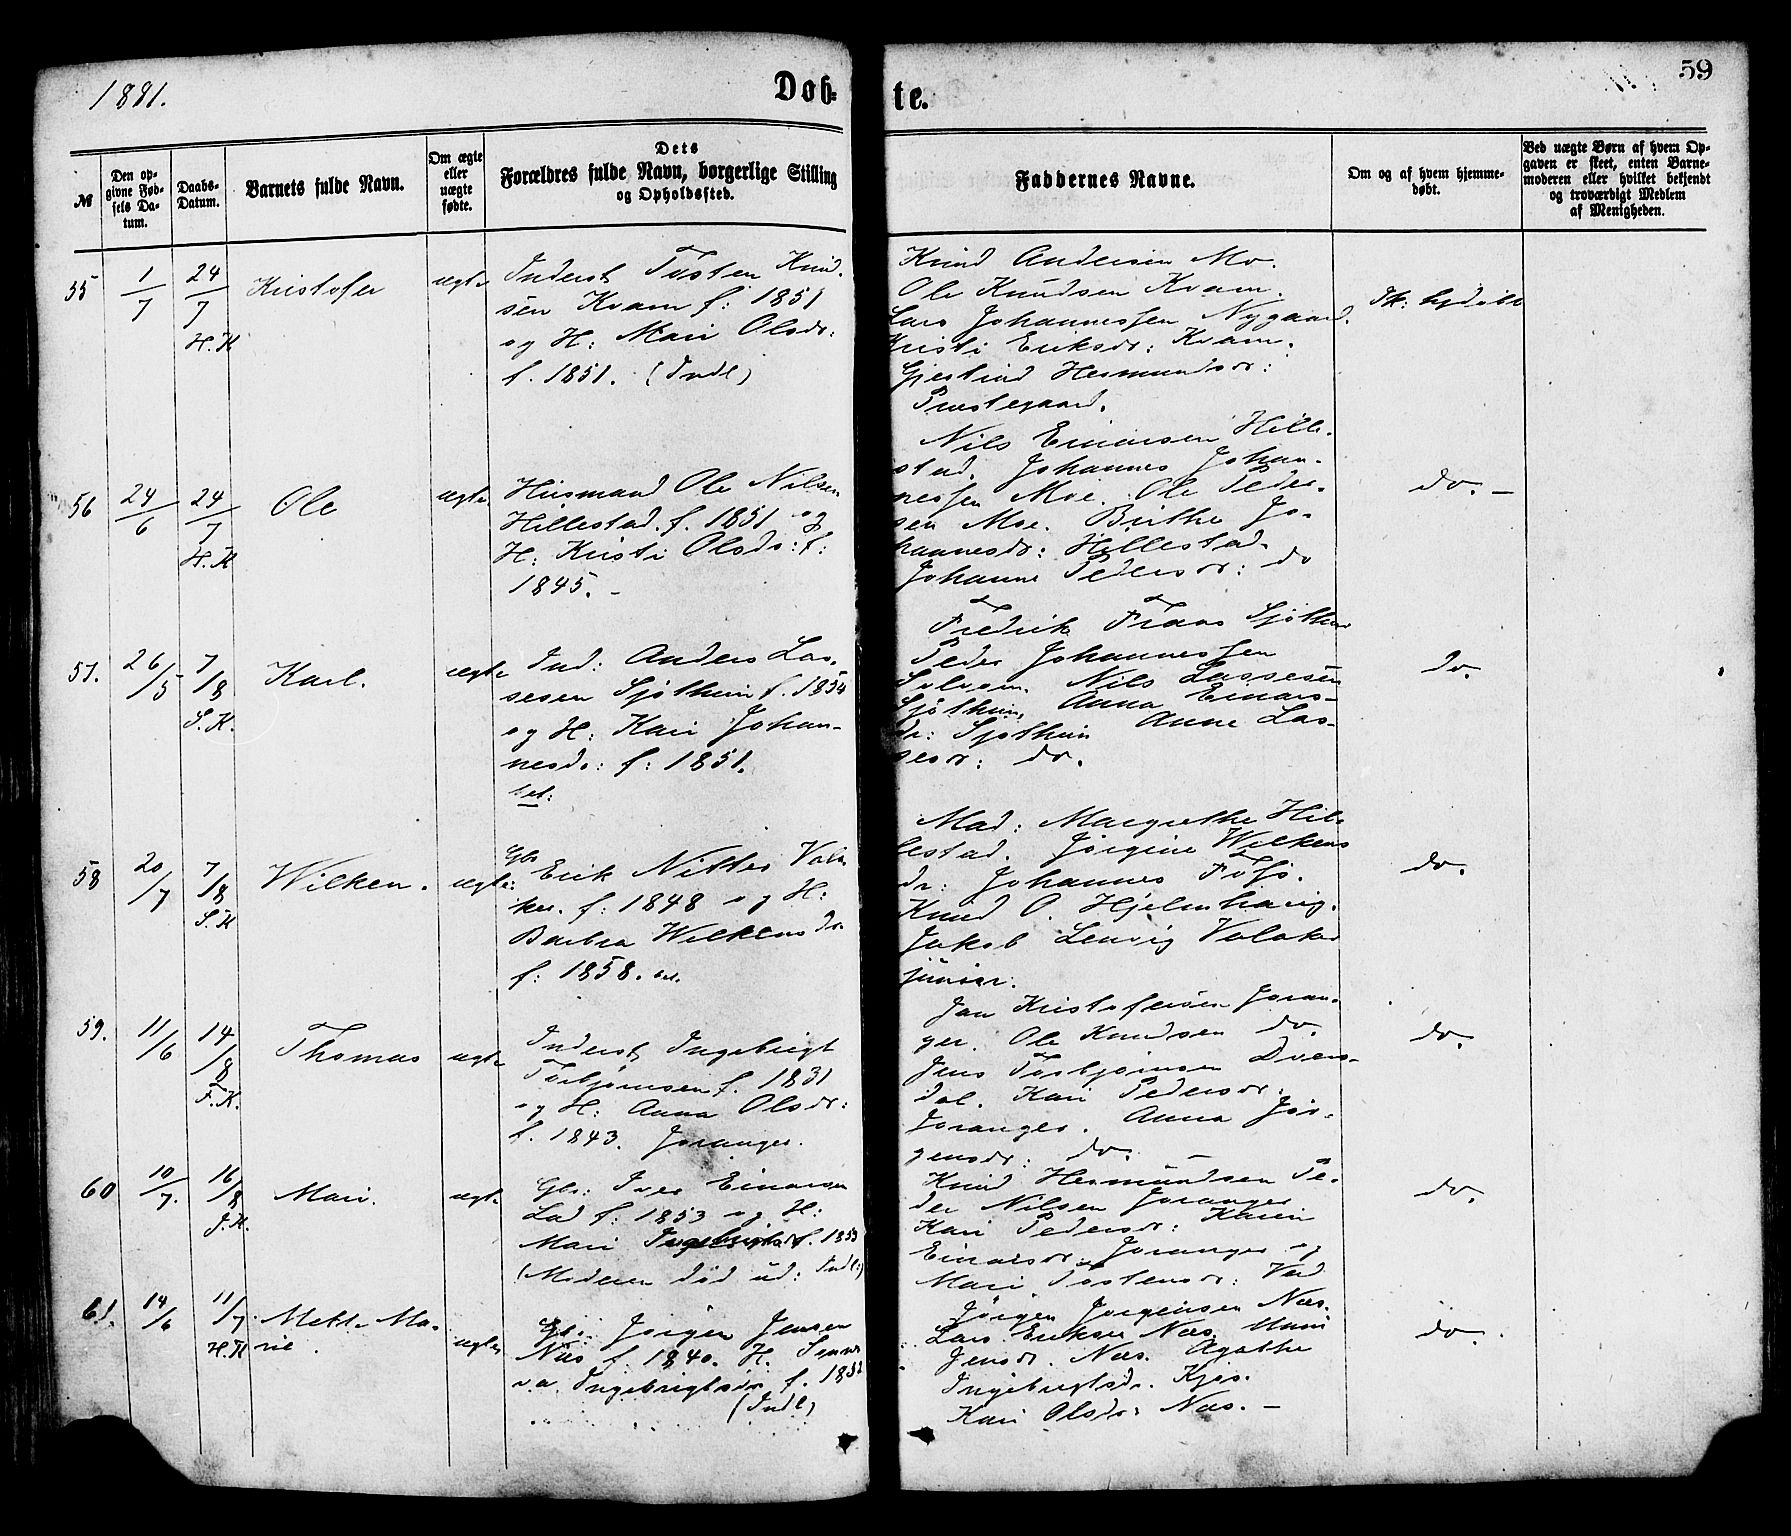 1881.
Døb-
te.
59
№
Den op-
givne Fød-
sels Da-
tum.
Daabs-
Datum.
Barnets fulde Navn.
Om ægte
eller
uægte
fødte.
Dets
Forældres fulde Navn, borgerlige Stilling
og Opholdssted.
Faddernes Navne.
Om og af hvem hjemme-
døbt.
Ved uægte Børn af hvem Op-
gaven er skeet, enten Barne-
moderen eller hvilket bekjendt
og troværdigt Medlem
af Menigheden.
55
1/7
24/7
H.K
Kristofer
ægte
Inderst Tosten Knud-
sen Kvam f: 1851
og H: Mari Olsdr:
f. 1851. (Indl)
Knud Andersen Mo.
Ole Knudsen Kvam.
Lars Johannessen Nygaard.
Kristi Eriksdr: Kvam.
Gjertrud Hermundsdr:
Prestegaard.
56
24/6
24/7
H.K
Ole
ægte
Husmand Ole Nilsen
Hillestad. f. 1851 og
H: Kristi Olsdr: f:
1845. -
Nils Einarsen Hille-
stad. Johannes Johan-
nessen Moe. Ole Peder-
sen Moe. Brithe Jo-
hannesdr: Hillestad.
Johanne Pedersdr: do
do. -
57.
26/5
7/8
S.K.
Karl.
ægte
Ind: Anders Las-
sesen Sjøthun f. 1854
og H: Kari Johan-
nesdr: f: 1851.
Fredrik Frans Sjøthun
Peder Johannessen
Nils Lassesen
Sjøthun, Anna Einars-
dr: Sjøthun Anne Las-
sesdr: do.
do.
58
20/7
7/8
S.K
Wilken.
ægte:
Gbr Erik Nitter Vola-
ker. f: 1848 og H:
Barbra Wilkensdr
f: 1858.
Mad: Margrethe Hil-
lestad. Jørgine Wilkens
dr: Johannes
Knud O. Hjelmhaug.
Jakob Lenvig Volaker
junior.
do.
59.
11/6
14/8
F.K.
Thomas
ægte
Inderst Ingebrigt
Torbjørnsen f. 1831
og H: Anna Olsdr:
f. 1843. Joranger.
Jan Kristofersen Joran-
ger. Ole Knudsen do.
Jens Torbjørnsen Dvers-
dal. Kari Pedersdr:
Joranger. Anna Jør-
gensdr: do. -
do.
60
10/7.
16/8
J.K.
Mari.
ægte
Gbr: Iver Einarsen
Lad f: 1853 og H:
Mari Ingebrigtsdr f. 1853
(Moderen død ud: Indl:)
Knud Hermundsen Pe-
der Nilsen Joranger
Kari Pedersdr: Karin
Einarsdr. Joranger og
Mari Tostensdr: Lad
do.
61.
14/6
11/7
H.K
Mette Ma-
rie.
ægte
Gbr. Jørgen Jensen
Næs f. 1840. H. Sønne-
va. Ingebrigtsdr f. 1852
(Indl)
Jørgen Jørgensen Næs.
Lars Eriksen Næs.
Jensdr. Næs. Agathe
Ingebrigtsdr. Kjæs.
Kari Olsdr: Næs. -
do.